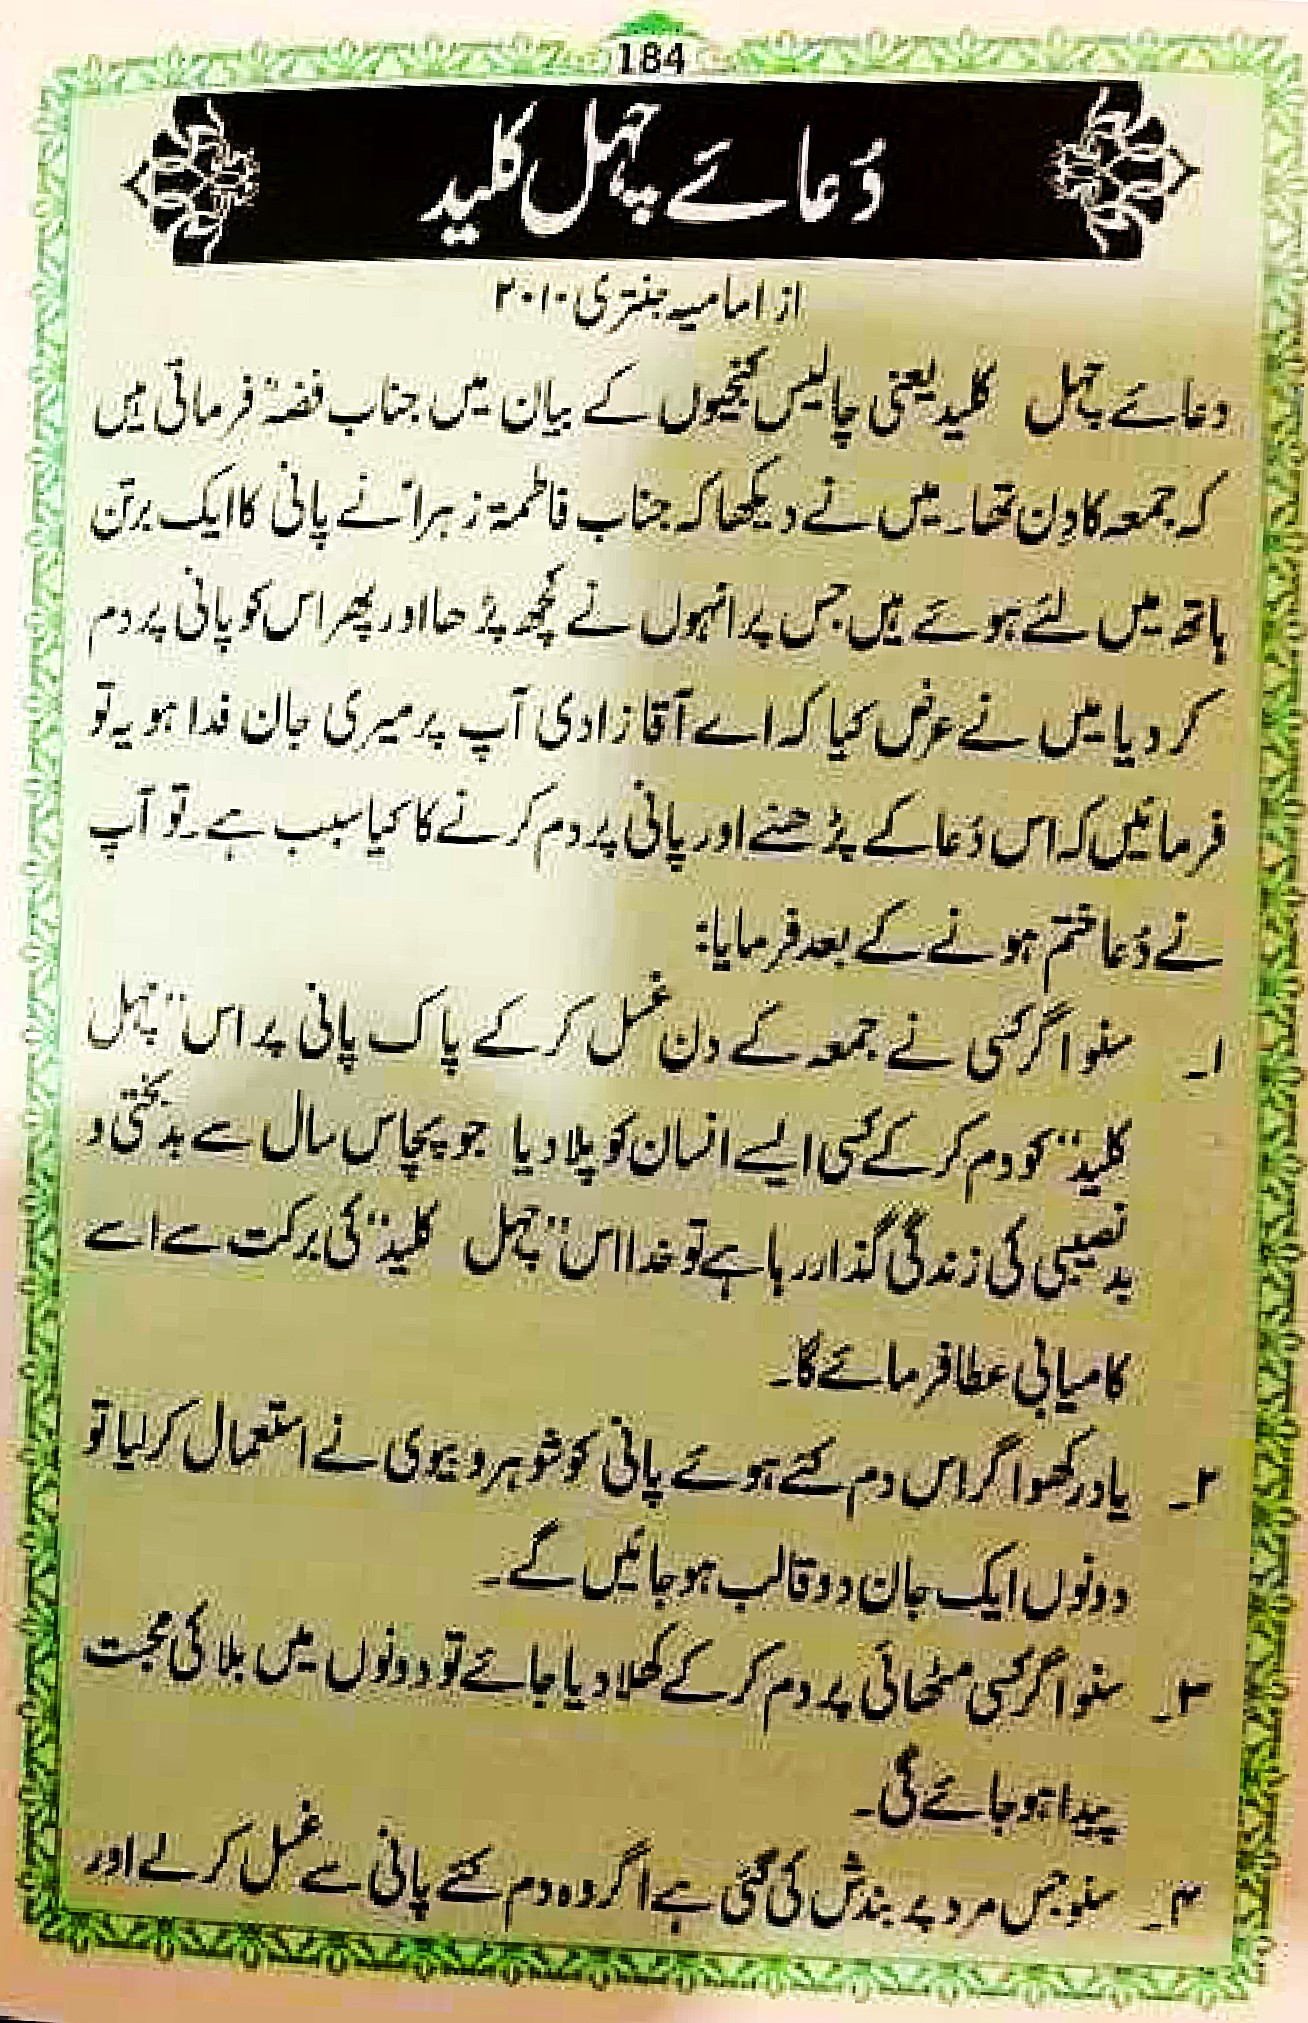 184
دُعائے چہل کلید
از امامیہ جنتری ۲۰۱۰
دعائے چہل کلید یعنی چالیس کنجیوں کے بیان میں جناب فضہؑ فرماتی ہیں
کہ جمعہ کا دِن تھا۔ میں نے دیکھا کہ جناب فاطمۃ زہراؑ نے پانی کا ایک برتن
ہاتھ میں لئے ہوئے ہیں جس پر انہوں نے کچھ پڑھا اور پھر اس کو پانی پر دم
کر دیا میں نے عرض کیا کہ اے آقا زادی آپ پر میری جان فدا ہو یہ تو
فرمائیں کہ اس دُعا کے پڑھنے اور پانی پر دم کرنے کا کیا سبب ہے۔ تو آپ
نے دُعا ختم ہونے کے بعد فرمایا:
۱۔ سنو اگر کسی نے جمعہ کے دن غسل کر کے پاک پانی پر اس ”چہل
کلید“ کو دم کر کے کسی ایسے انسان کو پلا دیا جو پچاس سال سے بدبختی و
بدنصیبی کی زندگی گذار رہا ہے تو خدا اس ”چہل کلید“ کی برکت سے اسے
کامیابی عطا فرمائے گا۔
۲۔ یاد رکھو اگر اس دم کئے ہوئے پانی کو شوہر و بیوی نے استعمال کر لیا تو
دونوں ایک جان دو قالب ہو جائیں گے۔
۳۔ سنو اگر کسی مٹھائی پر دم کر کے کھلا دیا جائے تو دونوں میں بلا کی محبت
پیدا ہو جائے گی۔
۴۔ سنو جس مرد پر بندش کی گئی ہے اگر وہ دم کئے پانی سے غسل کر لے اور